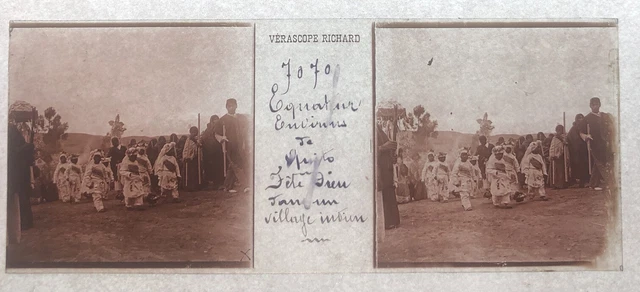 VÉRASCOPE RICHARD
7070
Equateur
Environs
de
Quito
Fête Dieu
dans un
village indien